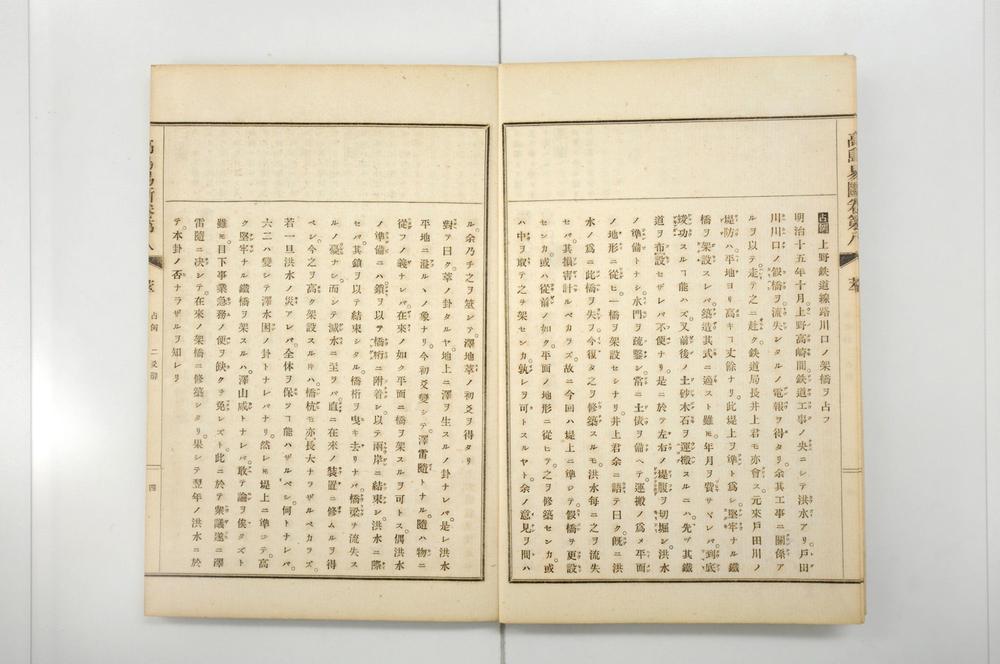 高島易斷卷第八
占例 上野鉄道線路川口ノ架橋ヲ占フ
明治十五年十月上野高崎間鉄道工事ノ央ニシテ洪水アリ戸田
川川口ノ假橋ヲ流失シタルノ電報ヲ得タリ余其工事ニ關係ア
ルヲ以テ走テ之ニ赴ク鉄道局長井上君モ亦會ス元來戸田川ノ
堤防ハ平地ヨリ高キヿ丈餘ナリ此堤上ヲ準ト爲シ堅牢ナル鐵
橋ヲ架設スレバ築造其式ニ適スト雖𪜈年月ヲ費サヾレバ到底
竣功スルヿ能ハズ又前後ノ土砂木石ヲ運搬スルニハ先ヅ其鐵
道ヲ布設セザレバ不便ナリ是ニ於テ左右ノ堤腹ヲ切堀シ洪水
ノ準備トナシ水門ヲ疏鑿シ常ニ土俵ヲ備ヘ運搬ノ爲メ平面
ノ地形ニ從ヒ一ノ假橋ヲ架設セシナリ井上君余ニ語テ曰ク既ニ洪
水ノ爲ニ此橋ヲ失フ今復タ之ヲ修築スルモ洪水每ニ之ヲ流失
セバ其損害計ルベカラズ故ニ今回ハ堤上ニ準シテ假橋ヲ更設
センカ或ハ從前ノ如ク平面ノ地形ニ從ヒテ之ヲ修築センカ或
ハ中ヲ取テ之ヲ架センカ孰レヲ可トスルヤト余ノ意見ヲ問ハ
ル余乃チ之ヲ筮シテ澤地萃ノ初爻ヲ得タリ
對テ曰ク萃ノ卦タルヤ地上ニ澤ヲ生スルノ卦ナレバ是レ洪水
平地ニ溢ルヽノ象ナリ今初爻變シテ澤雷隨トナル隨ハ物ニ
從フノ義ナレバ在來ノ如ク平面ニ橋ヲ架スルヲ可トス偶洪水
ノ準備ニハ鎖ヲ以テ橋桁ニ附着シ以テ兩岸ニ結束シ洪水ニ際
セバ其鎖ヲ以テ結束シタル橋桁ヲ曳キ去リナバ橋梁ヲ流失ス
ルノ憂ナシ而シテ減水ニ至ラバ直ニ在來ノ裝置ニ修ムルヲ得
ベシ今之ヲ高ク架設スル𪜈ハ橋杭モ亦長大ナラザルベカラズ
若一旦洪水ノ災アレバ全体ヲ保ツヿ能ハザルベシ何トナレバ
六二ハ變シテ澤水困ノ卦トナレバナリ然レ𪜈堤上ニ準シテ高
ク堅牢ナル鐵橋ヲ架スルハ澤山咸トナレバ敢テ論ヲ俟タズト
雖𪜈目下事業急務ノ便ヲ缺クヲ免レズト此ニ於テ衆議遂ニ澤
雷隨ニ决シテ在來ノ架橋ニ修築シタリ果シテ翌年ノ洪水ニ於
テ本卦ノ否ナラザルヲ知レリ
占例
二爻辭
四